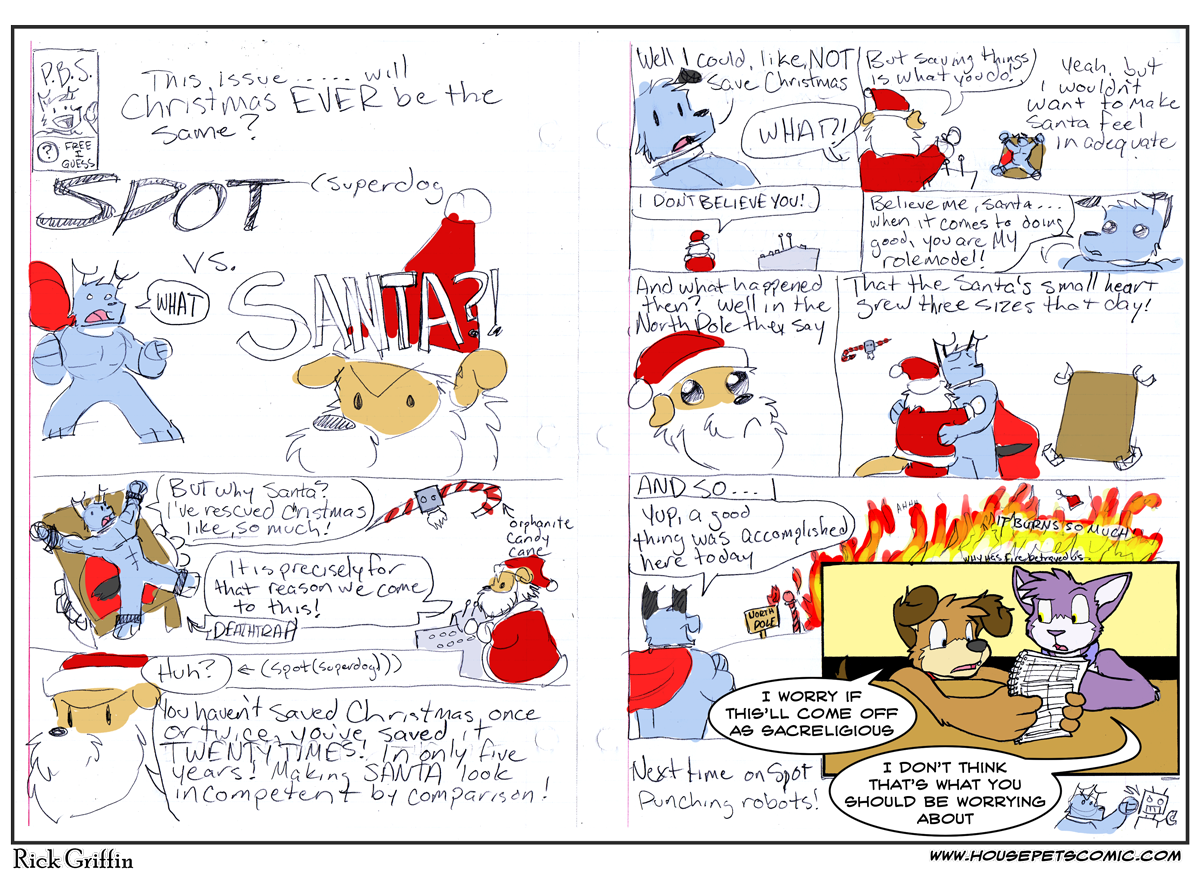 P.B.S.
?
FREE
I
GUESS
This issue...... will
Christmas EVER be the
same?
SPOT
(superdog
vs.
SANTA?!
WHAT
But why Santa?
I've rescued Christmas
like, so much!
orphanite
candy
cane
It is precisely for
that reason we come
to this!
DEATHTRAP
Huh?
← (spot(superdog)))
You haven't saved Christmas once
or twice, you've saved it
TWENTY TIMES! In only five
years! Making SANTA look
incompetent by comparison!
Well I could, like, NOT
save Christmas
WHAT?!
But saving things
is what you do!
Yeah, but
I wouldn't
want to make
Santa feel
inadequate
I DONT BELIEVE YOU!
Believe me, santa...
when it comes to doing
good, you are MY
rolemodel!
And what happened
then? Well in the
North Pole they say
That the Santa's small heart
grew three sizes that day!
AND SO....
Yup, a good
thing was accomplished
here today
AHHH
IT BURNS SO MUCH
WHY HAS FIRE BETRAYED US
NORTH
POLE
I WORRY IF
THIS'LL COME OFF
AS SACRELIGIOUS
I DON'T THINK
THAT'S WHAT YOU
SHOULD BE WORRYING
ABOUT
Next time on Spot
Punching robots!
Rick Griffin
WWW.HOUSEPETSCOMIC.COM